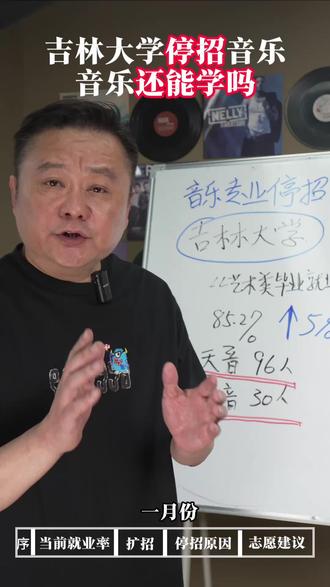 吉林大学停招音乐
音乐还能学吗
NELLY
音乐专业停招
吉林大学
22艺术类毕业就业
85.27%
↑5%
天音 96人
音 30人
一月份
序
当前就业率
扩招
停招原因
志愿建议